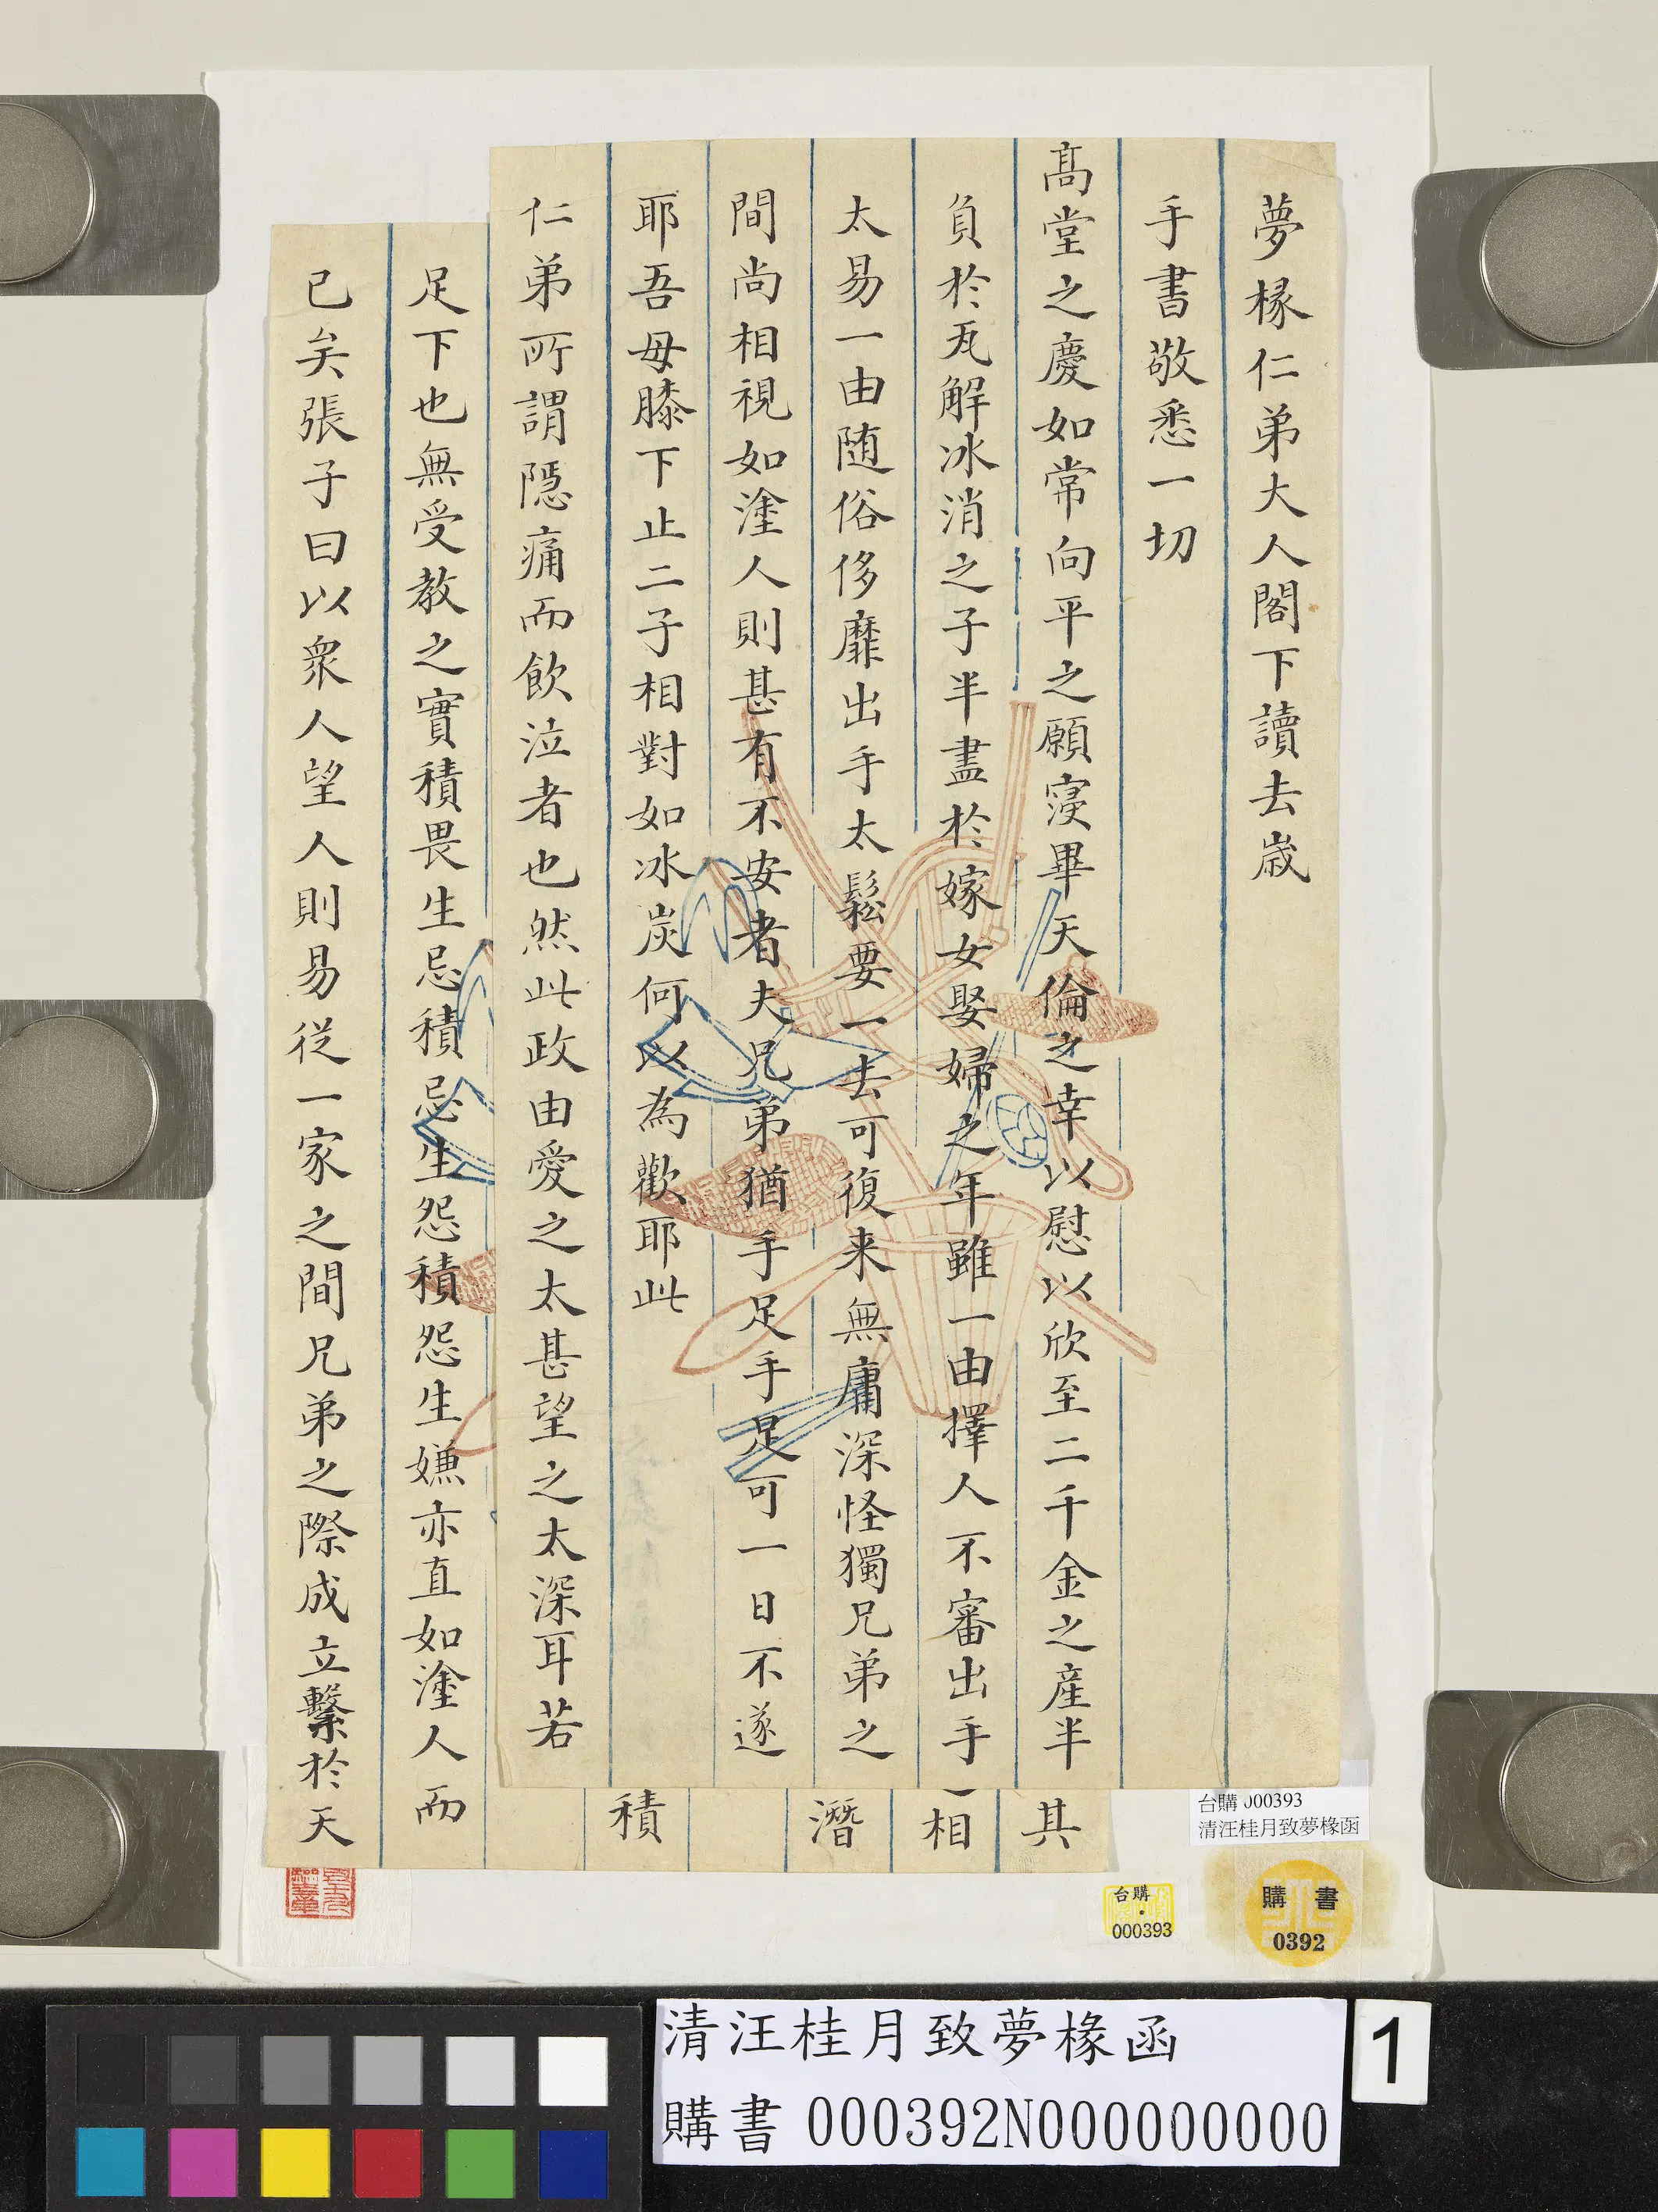 夢椽仁弟大人閣下讀去歲
手書敬悉一切
髙堂之慶如常向平之願寖畢天倫之幸以慰以欣至二千金之產半
負於瓦解冰消之子半盡於嫁女娶婦之年雖一由擇人不審出手
太易一由随俗侈靡出手太鬆要一去可復来無庸深怪獨兄弟之
間尚相視如塗人則甚有不安者夫兄弟猶手足手足可一日不遂
耶吾母膝下止二子相對如冰炭何以為歡耶此
仁弟所謂隱痛而飲泣者也然此政由愛之太甚望之太深耳若
其
相
潛
積
足下也無受教之實積畏生忌積忌生怨積怨生嫌亦直如塗人而
已矣張子曰以衆人望人則易從一家之間兄弟之際成立繫於天
台購 000393
清汪桂月致夢椽函
台購
000393
購書
0392
清汪桂月致夢椽函
購書 000392N000000000
1